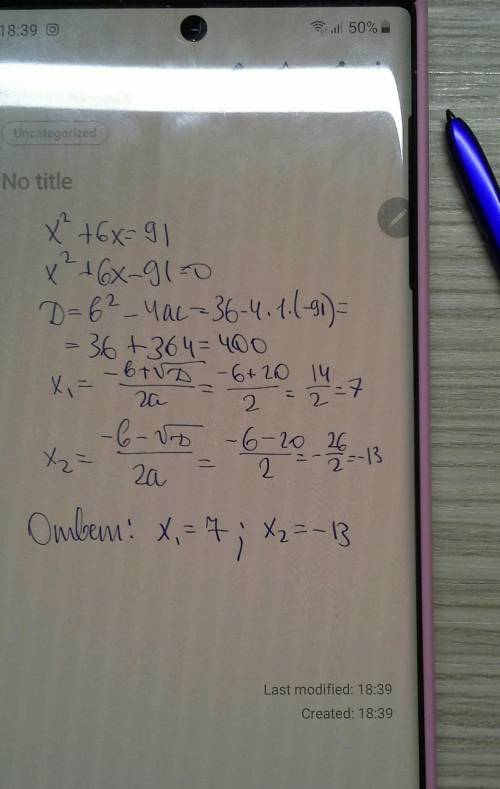 18:39 50%
Uncategorized
No title
x² + 6x = 91
x² + 6x - 91 = 0
D = b² - 4ac = 36 - 4 · 1 · (-91) =
= 36 + 364 = 400
x₁ = (-b + √D)/2a = (-6 + 20)/2 = 14/2 = 7
x₂ = (-b - √D)/2a = (-6 - 20)/2 = -26/2 = -13
Ответ: x₁ = 7 ; x₂ = -13
Last modified: 18:39
Created: 18:39